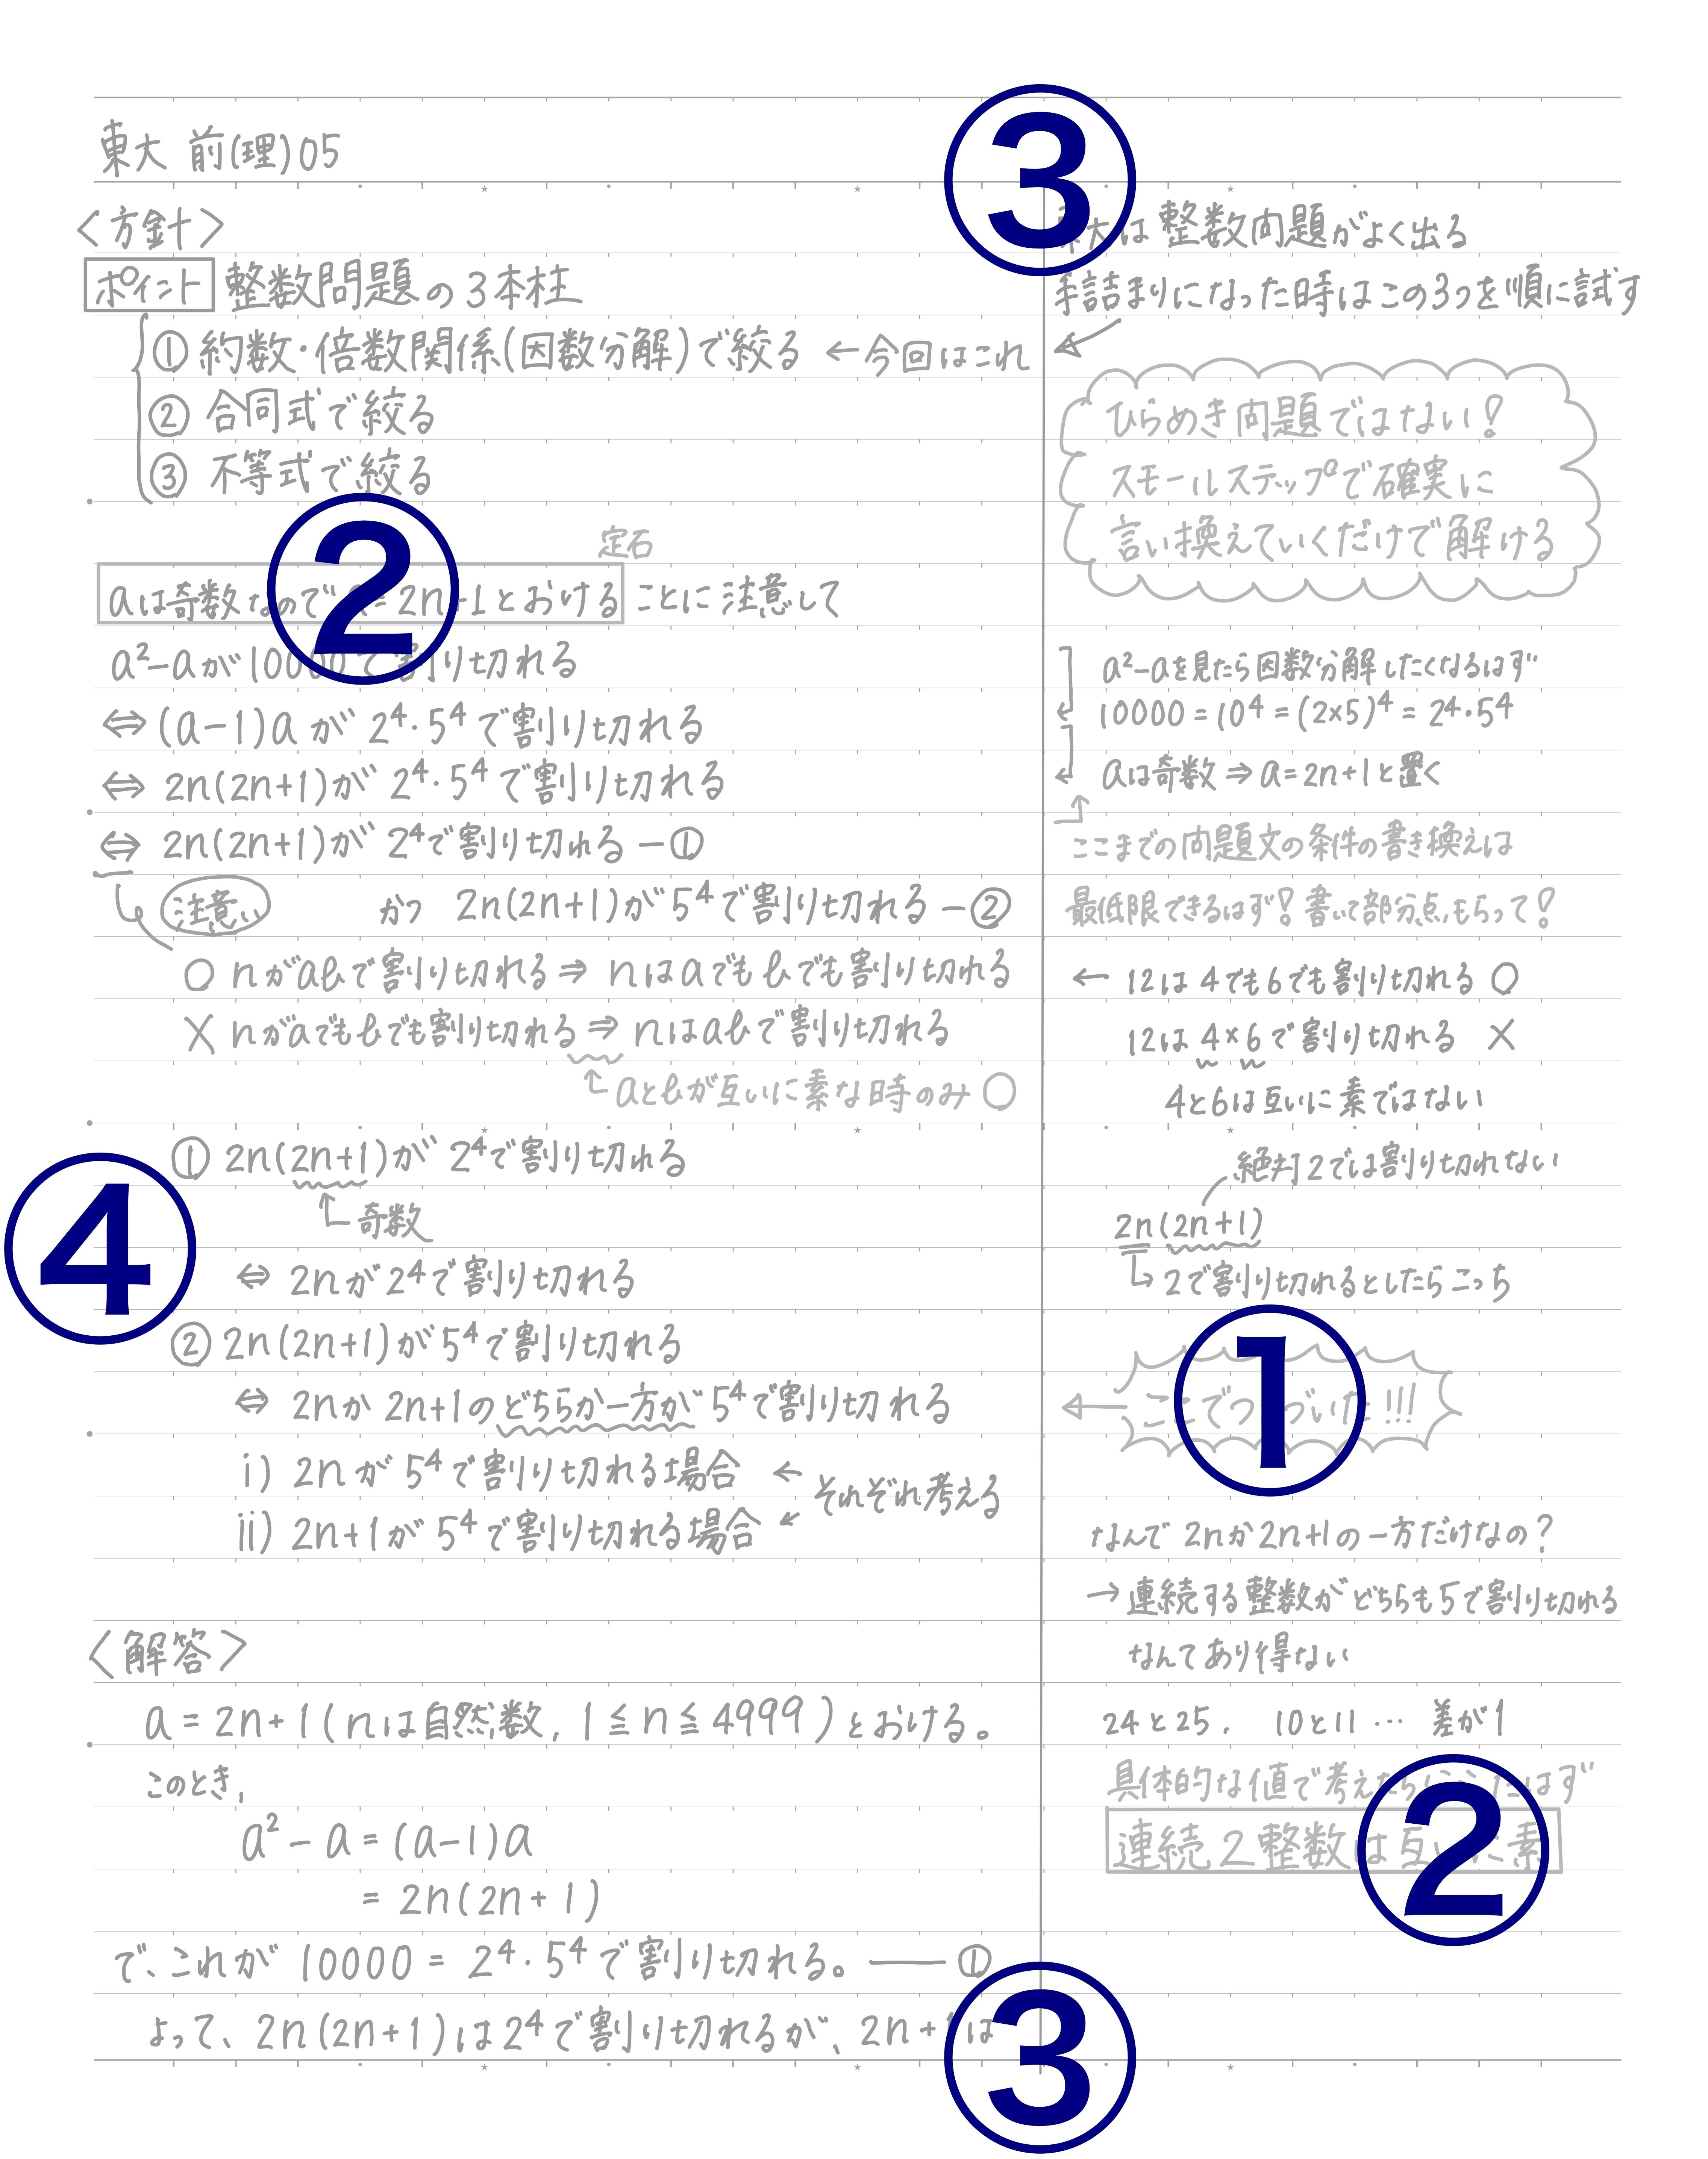 東大 前(理)05
<方針>
ポイント 整数問題の3本柱
① 約数・倍数関係(因数分解)で絞る ←今回はこれ
② 合同式で絞る
③ 不等式で絞る
定石
②
aは奇数なので 2n+1とおける ことに注意して
a²-aが10000で割り切れる
⇔(a-1)a が 2⁴・5⁴で割り切れる
⇔ 2n(2n+1)が 2⁴・5⁴で割り切れる
⇔ 2n(2n+1)が 2⁴で割り切れる ー①
注意 かつ 2n(2n+1)が5⁴で割り切れる ー②
○ nがabで割り切れる ⇒ nはaでもbでも割り切れる
× nがaでもbでも割り切れる ⇒ nはabで割り切れる
↑aとbが互いに素な時のみ○
④
① 2n(2n+1)が 2⁴で割り切れる
↑奇数
⇔ 2nが2⁴で割り切れる
② 2n(2n+1)が5⁴で割り切れる
⇔ 2nか2n+1のどちらか一方が5⁴で割り切れる
i) 2nが5⁴で割り切れる場合 ←
それぞれ考える
ii) 2n+1が5⁴で割り切れる場合 ←
<解答>
a=2n+1(nは自然数, 1≦n≦4999)とおける。
このとき,
a²-a=(a-1)a
=2n(2n+1)
で、これが 10000=2⁴・5⁴で割り切れる。——①
よって、2n(2n+1)は2⁴で割り切れるが、2n+1は
③
③
東大は整数問題がよく出る
手詰まりになった時はこの3つを順に試す
←
ひらめき問題ではない!
スモールステップで確実に
言い換えていくだけで解ける
a²-aを見たら因数分解したくなるはず
10000=10⁴=(2×5)⁴=2⁴・5⁴
aは奇数⇒a=2n+1と置く
ここまでの問題文の条件の書き換えは
最低限できるはず!書いて部分点もらって!
← 12は4でも6でも割り切れる ○
12は4×6で割り切れる ×
4と6は互いに素ではない
絶対2では割り切れない
2n(2n+1)
↳2で割り切れるとしたらこっち
①
← ここでつまづいた!!!
なんで2nか2n+1の一方だけなの?
→連続する整数がどちらも5で割り切れる
なんてあり得ない
24と25, 10と11… 差が1
具体的な値で考えたら はず
②
連続2整数は互いに素